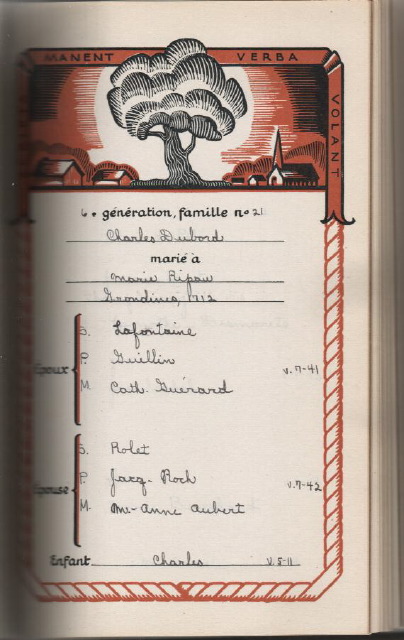 MANENT VERBA
VOLANT
6e génération, famille no 21
Charles Dubord
marié à
Marie Ripau
Grondines, 1712
S. Lafontaine
Époux P. Guillin v. 7-41
M. Cath. Guérard
S. Rolet
Épouse P. Jacq. Roch v. 7-42
M. M. Anne Aubert
Enfant Charles v. 5-11